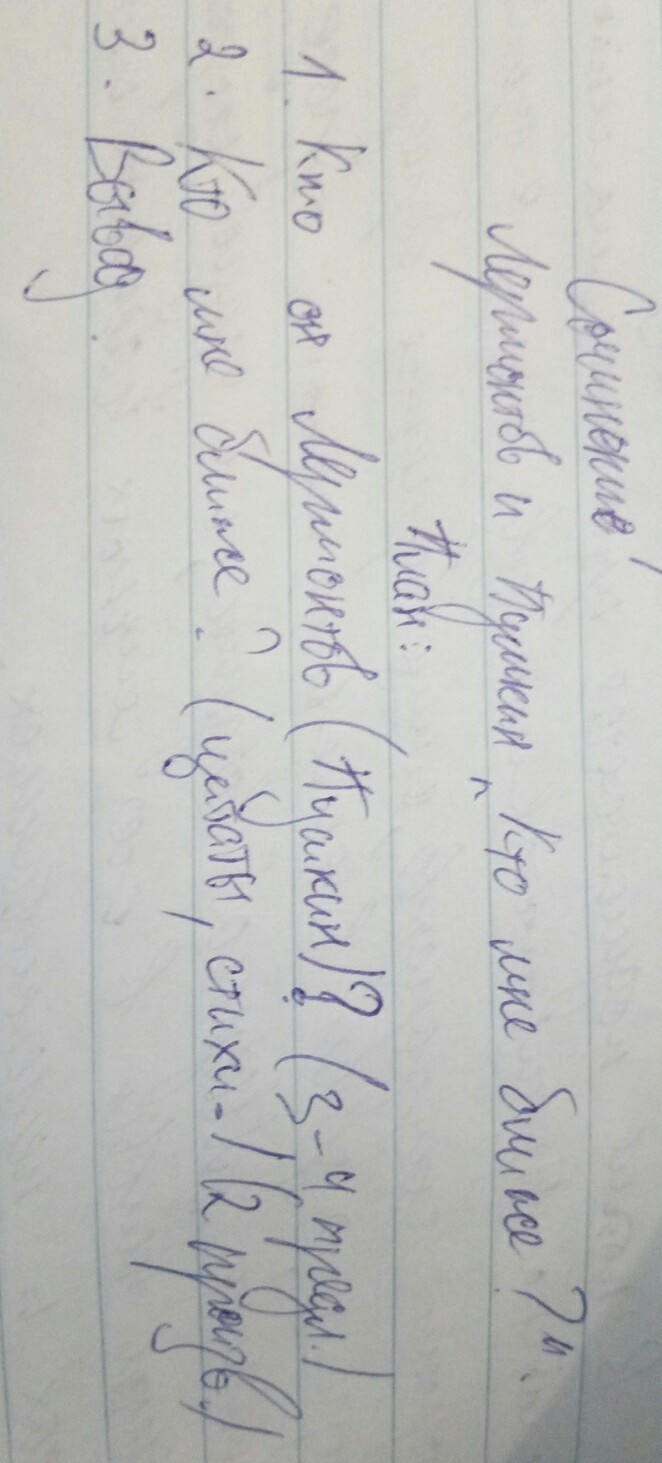 Сочинение
Лермонтов и Пушкин "Кто мне ближе?".
План:
1. Кто он Лермонтов (Пушкин)? (3-4 предл.)
2. Кто мне ближе? (цитаты, стихи-) (2 произв.)
3. Вывод.